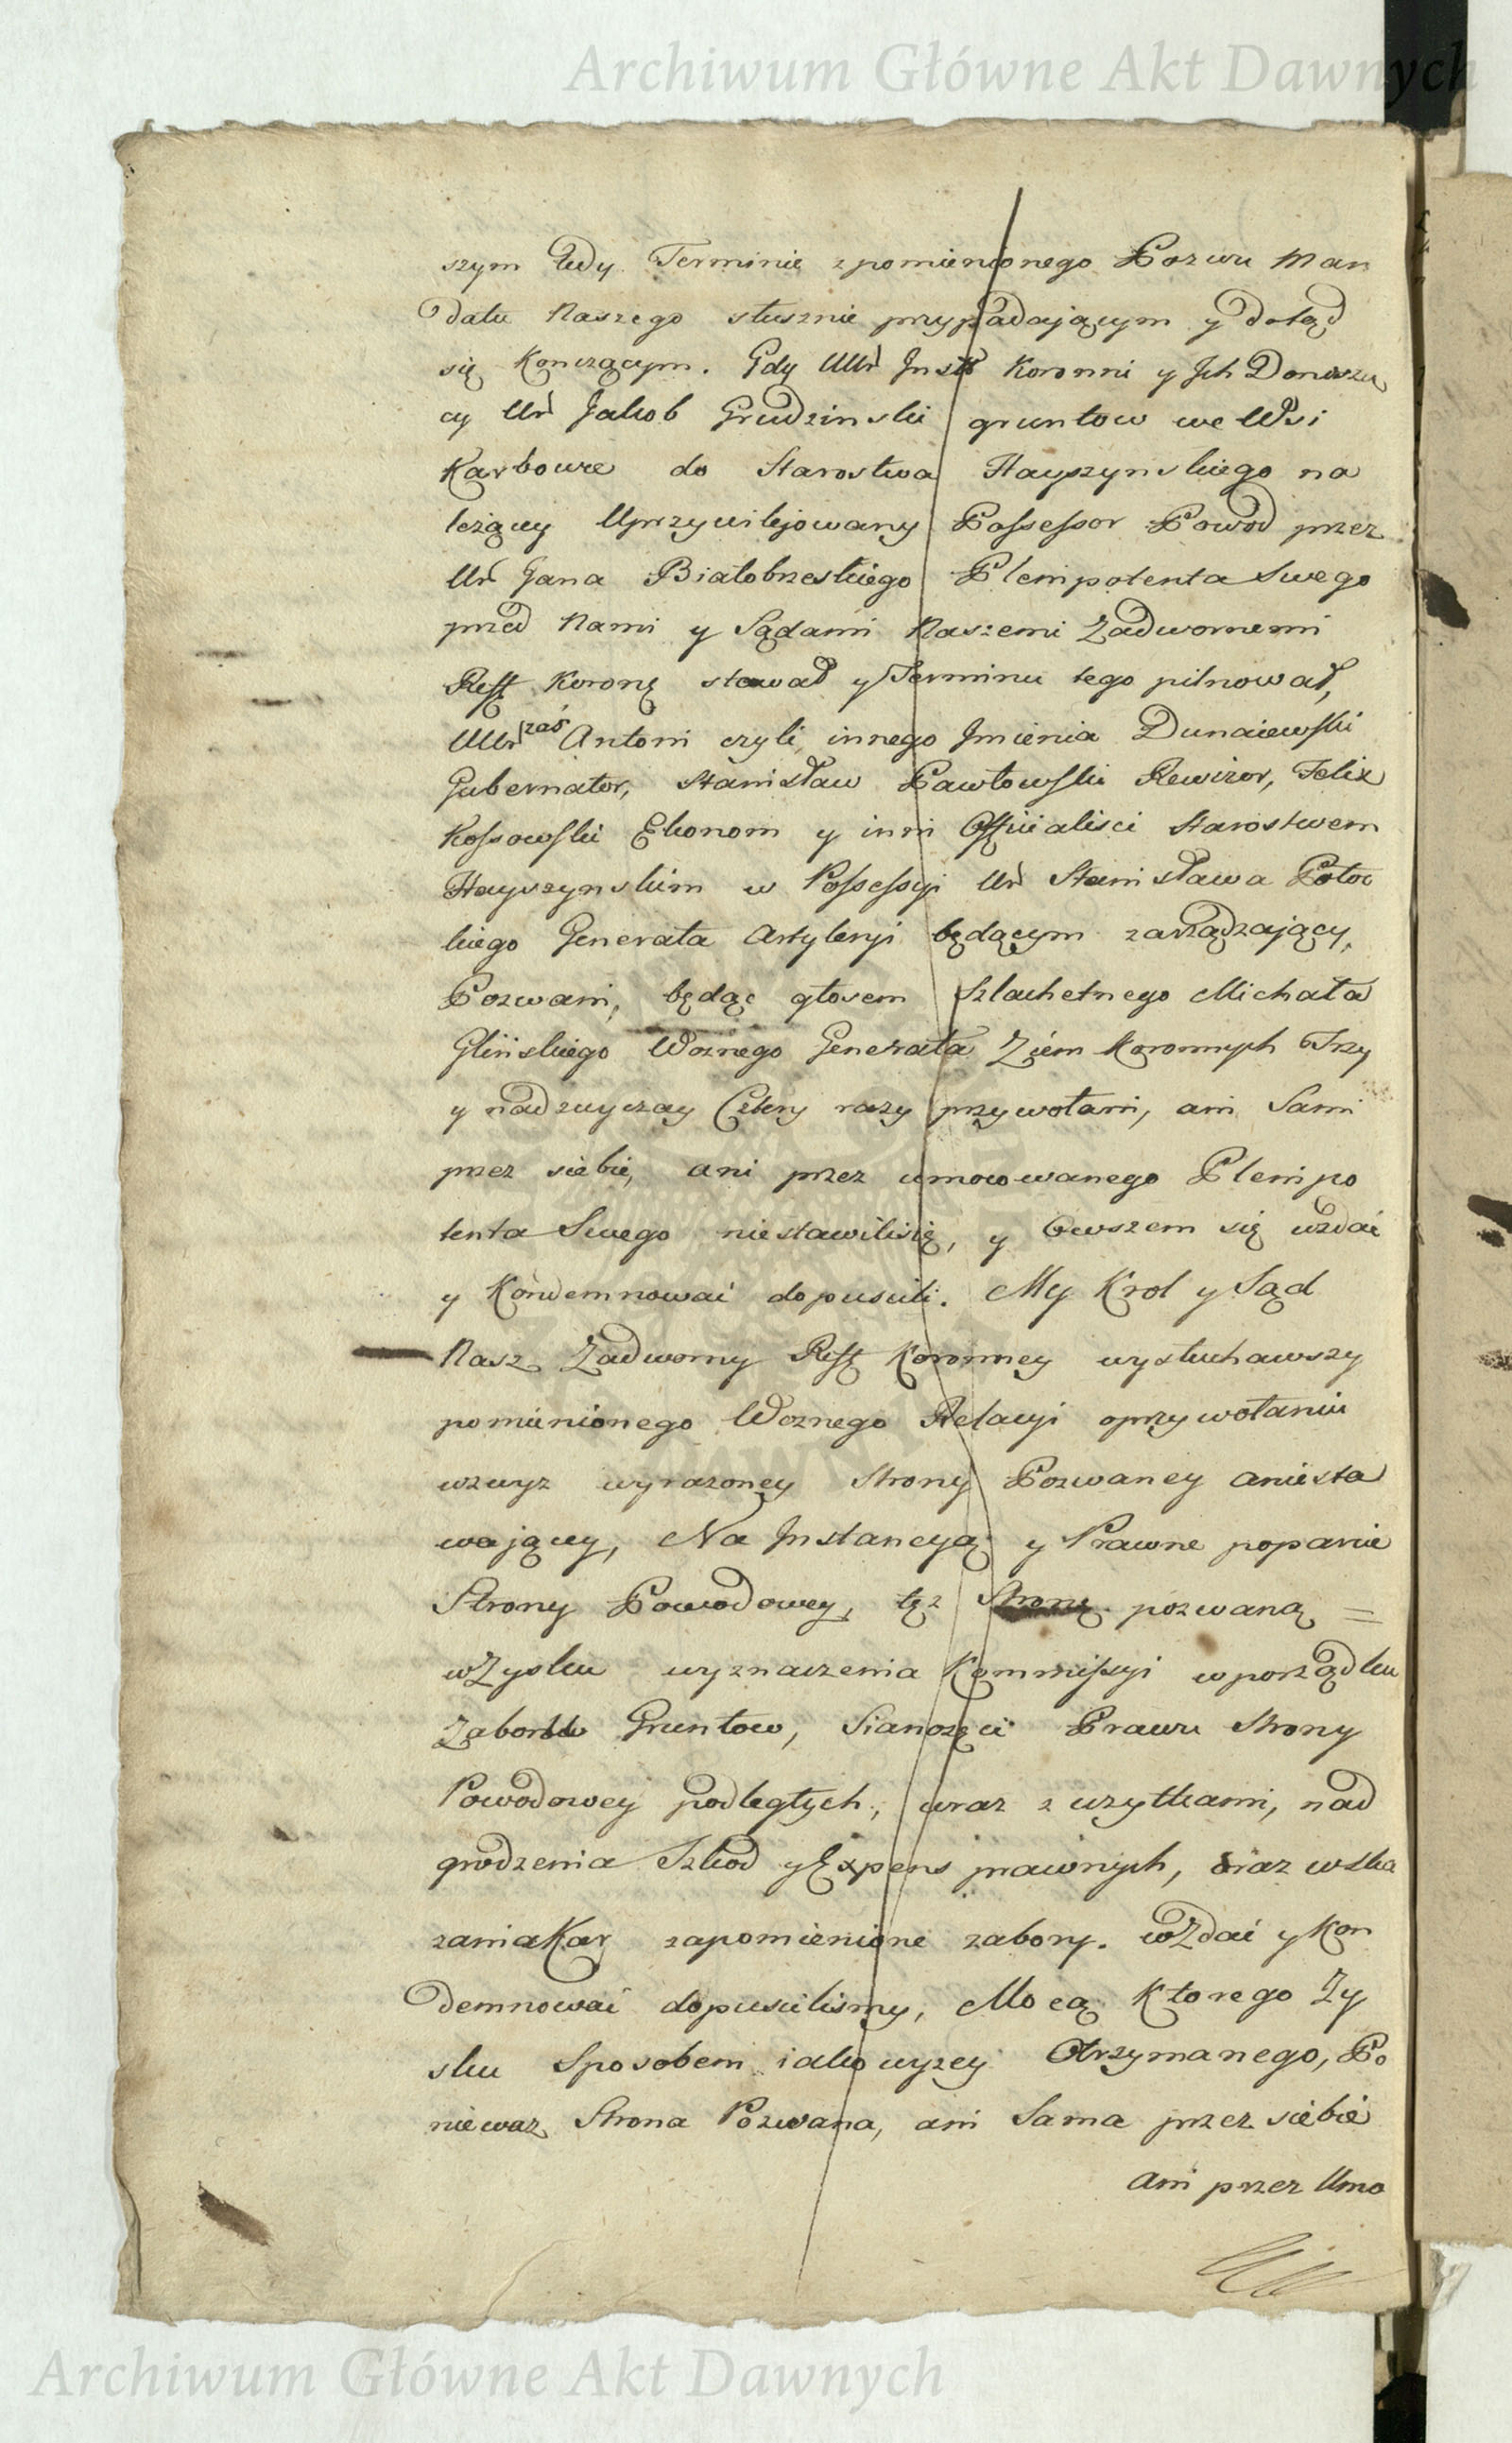 Archiwum Główne Akt Dawnych
szym tedy Terminie zpomienionego Pozwu Man
datu Naszego słusznie przypadaiącym y dotąd
się Konczącym. Gdy UUr Inst Koronni y Ich Donoszą
cy Ur Jakob Grudzinski gruntow we Wsi
Karbowce do Starostwa Hayszynskiego na
leżący Uprzywilejowany Possessor Powod przez
Ur Jana Białobrzeskiego Plenipotenta Swego
przed Nami y Sądami Naszemi Zadwornemi
Reft Koronę stawał y Terminu tego pilnował,
UUr zaś Antoni czyli innego Imienia Dunaiewski
Gubernator, Stanisław Pawłowski Rewizor, Felix
Kossowski Ekonom y inni Officialisci Starostwem
Hayszynskim w Possessyi Ur Stanisława Potoc
kiego Generała Artyleryi będącym zarządzający,
Pozwani, będąc głosem Szlachetnego Michała
Glińskiego Woznego Generała Ziem Koronnych Trzy
y nadzwyczay Cztery razy przywołani, ani Sami
przez siebie, ani przez umocowanego Plenipo
tenta Swego niestawilisię, y Owszem się wzdać
y Kondemnować dopuscili. My Krol y Sąd
Nasz Zadworny Reft Koronney wysłuchawszy
pomienionego Woznego Relacyi oprzywołaniu
wzwyz wyrazoney Strony Pozwaney aniesta
waiącey, Na Instancyą y Prawne popanie
Strony Powodowey, tęz Stronę pozwaną =
wZysku wyznaczenia Kommissyi wporządku
Zaborow Gruntow, Sianozęci Prawu Strony
Powodowey podległych, wraz z uzytkami, nad
grodzenia Szkod yExpens prawnych, oraz wska
zaniaKar zapomienione zabory. wZdać yKon
demnować dopuscilismy, Mocą Ktorego Zy
sku Sposobem iakowyzey Otrzymanego, Po
niewaz Strona Pozwana, ani Sama przez siebie
ani przez Umo
Archiwum Główne Akt Dawnych